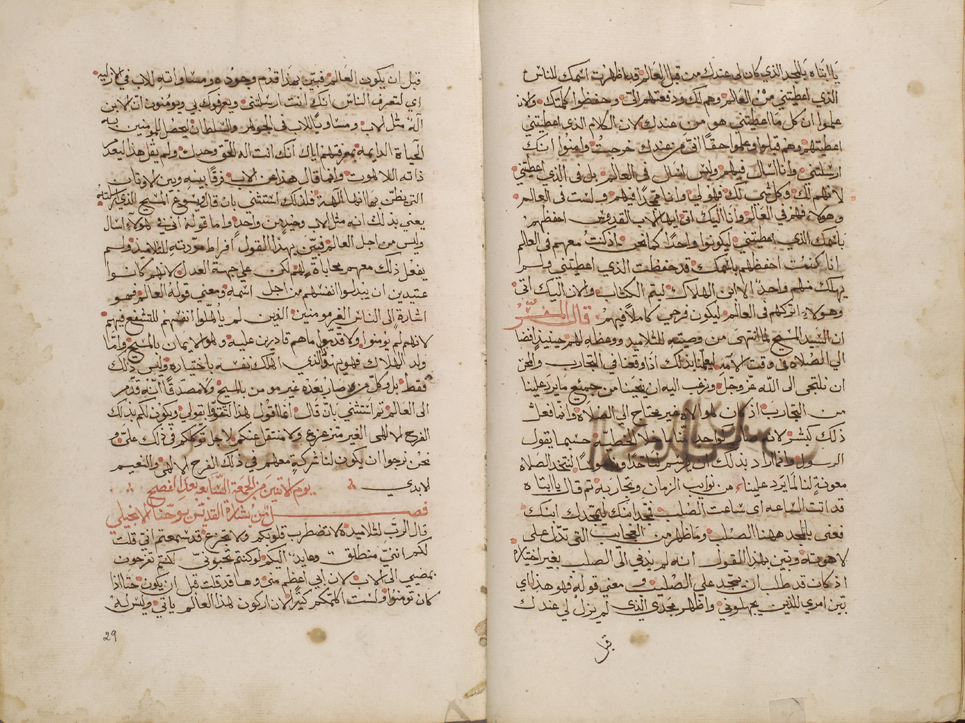 يا ابتاه بالمجد الذي كان لي عندك من قبل العالم قد اظهرت اسمك للناس
الذي اعطيتني من العالم وهم لك ودفعتهم الي وحفظوا كلمتك والان
علموا ان كل ما اعطيتني هو من عندك لان الكلام الذي اعطيتني
اعطيتهم وهم قبلوا وعلموا حقا اني من عندك خرجت وامنوا انك
ارسلتني وانا اسال فيهم وليس اسال في العالم بل في الذي اعطيتني
لانهم لك وكل شي لك فهو لي وانا ممجد فيهم ولست في العالم
وهولاء فهم في العالم وانا اليك اتي ايها الاب القدوس احفظهم
باسمك الذي اعطيتني ليكونوا واحدا كما نحن اذ كنت معهم في العالم
انا كنت احفظهم باسمك قد حفظت الذي اعطيتني ولم
يهلك منهم واحد الا ابن الهلاك ليتم الكتاب والان اليك اتي
وهولاء اتركهم في العالم ليكون فرحي كاملا فيهم قال المفسر
ان السيد المسيح لما انتهى من وصيته للتلاميذ ووعظه لهم حينيذ ايضا
الى الصلاه في وقت الامه يعلمنا بذلك اذا وقعنا في التجارب والحزن
ان نلتجي الى الله عز وجل ونرغب اليه ان ينجينا من جميع ما يرد علينا
من التجارب اذ كان هو الاه غير محتاج الى الصلاه وانما فعل
ذلك كبشر لانه صار واحدا منا خلا الخطيه حسبما يقول
الرسول وانما اراد بذلك ان
معونة لنا لما يرد علينا من نوايب الزمان وتجاربه ثم قال يا ابتاه
قد اتت الساعه اي ساعة الصلب فمجد ابنك ليمجدك ابنك
فعنى بالمجد ههنا الصلب وما ظهر من العجايب التي تدل على
لاهوته وتبين بهذا القول انه لم يدنى الى الصلب بغير اختياره
اذ كان قد طلب ان يتمجد على الصلب وفي معنى قوله فهو هذا اي
تبين امري للذين يجهلوني واظهر مجدي الذي لم يزل لي عندك
قبل
قبل ان يكون العالم فبين بهذا قدم وجوده ومساواته للاب في الازليه
اي لتعرف الناس انك انت ارسلتني ويعرفوك بي ويومنون ان الابن
اله مثل الاب ومساويا للاب في الجوهر والسلطان يعطي المومنين به
الحياة الدايمه بمعرفتهم اياك انك انت اله الحق وحدك ولم يقل هذا ليبعد
ذاته اللاهوت وانما قال هذا عن الاب فرقا بينه وبين الاوثان
التي يظن بها انها الهة فلذلك استثنى بان قال ويسوع المسيح الذي ارسلته
يعني بذلك انه مثل الاب وجوهرين واحد واما قوله اني في هولاء اسال
وليس من اجل العالم فبين بهذا القول افراط مودته للتلاميذ ولم
يفعل ذلك معهم محاباة لهم لكن على جهة العدل لانهم كانوا
عتيدين ان يبذلوا انفسهم من اجل اسمه ومعنى قوله العالم فهو
اشارة الى الناس الغير مومنين الذين لم ياهلوا انفسهم للتشفع فيهم
لانهم لم يومنوا ولا قدموا ما هم قادرين عليه وهو الايمان بالمسيح واما
ولد الهلاك فهو يهوذا الذي اهلك نفسه باختياره وليس ذلك
فقط بل
الى العالم ثم استثنى بان قال انما اقول هذا القول يقول ويكون لكم بذلك
الفرح الالهي الغير منتزع ولا منتقل عنكم لاجل توكلكم في ذلك على
نحن نرجوا ان يكون لنا شركة معهم في ذلك الفرح الالهي والنعيم
الابدي يوم الاثنين من الجمعة السابعه بعد الفصح
فصل من بشارة القديس يوحنا الانجيلي
قال الرب لتلاميذه لا تضطرب قلوبكم ولا تجزع قد سمعتم اني قلت
لكم انني منطلق وعايد اليكم لو كنتم تحبوني لكنتم تفرحون
بمضيي الى الاب لان ابي اعظم مني وها قد قلت قبل ان يكون حتى اذا
كان تومنوا ولست اكلمكم كثيرا لان اركون هذا العالم ياتي وليس له
29